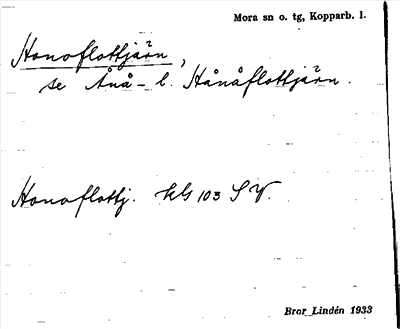 Mora sn o. tg, Kopparb. l.
Honoflottjärn,
se Ånå- l. Hånåflottjärn.
Honoflottj. kls 103 S V.
Bror Lindén 1933